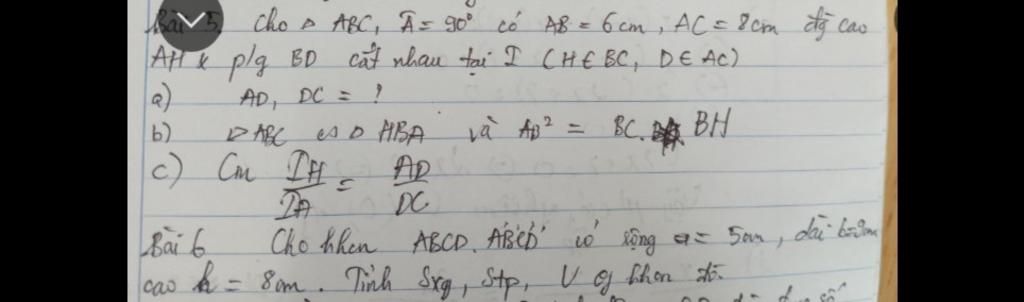 Bài 5. Cho △ ABC, Â = 90° có AB = 6cm, AC = 8cm đg cao
AH & p/g BD cắt nhau tại I (H ∈ BC, D ∈ AC)
a) AD, DC = ?
b) △ ABC ∽ △ HBA và AB² = BC. BH
c) Cm IH/IA = AD/DC
Bài 6 Cho hhcn ABCD. A'B'C'D' có rộng a = 5cm, dài b=9cm
cao h = 8cm. Tính Sxq, Stp, V of hhcn đó.